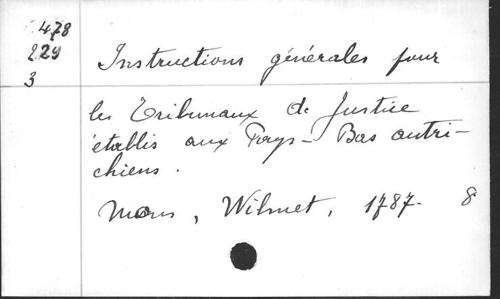 478
229
3
Instructions générales pour
les Tribunaux de Justice
établis aux Pays-Bas autri-
chiens.
Mons, Wilmet, 1787. 8